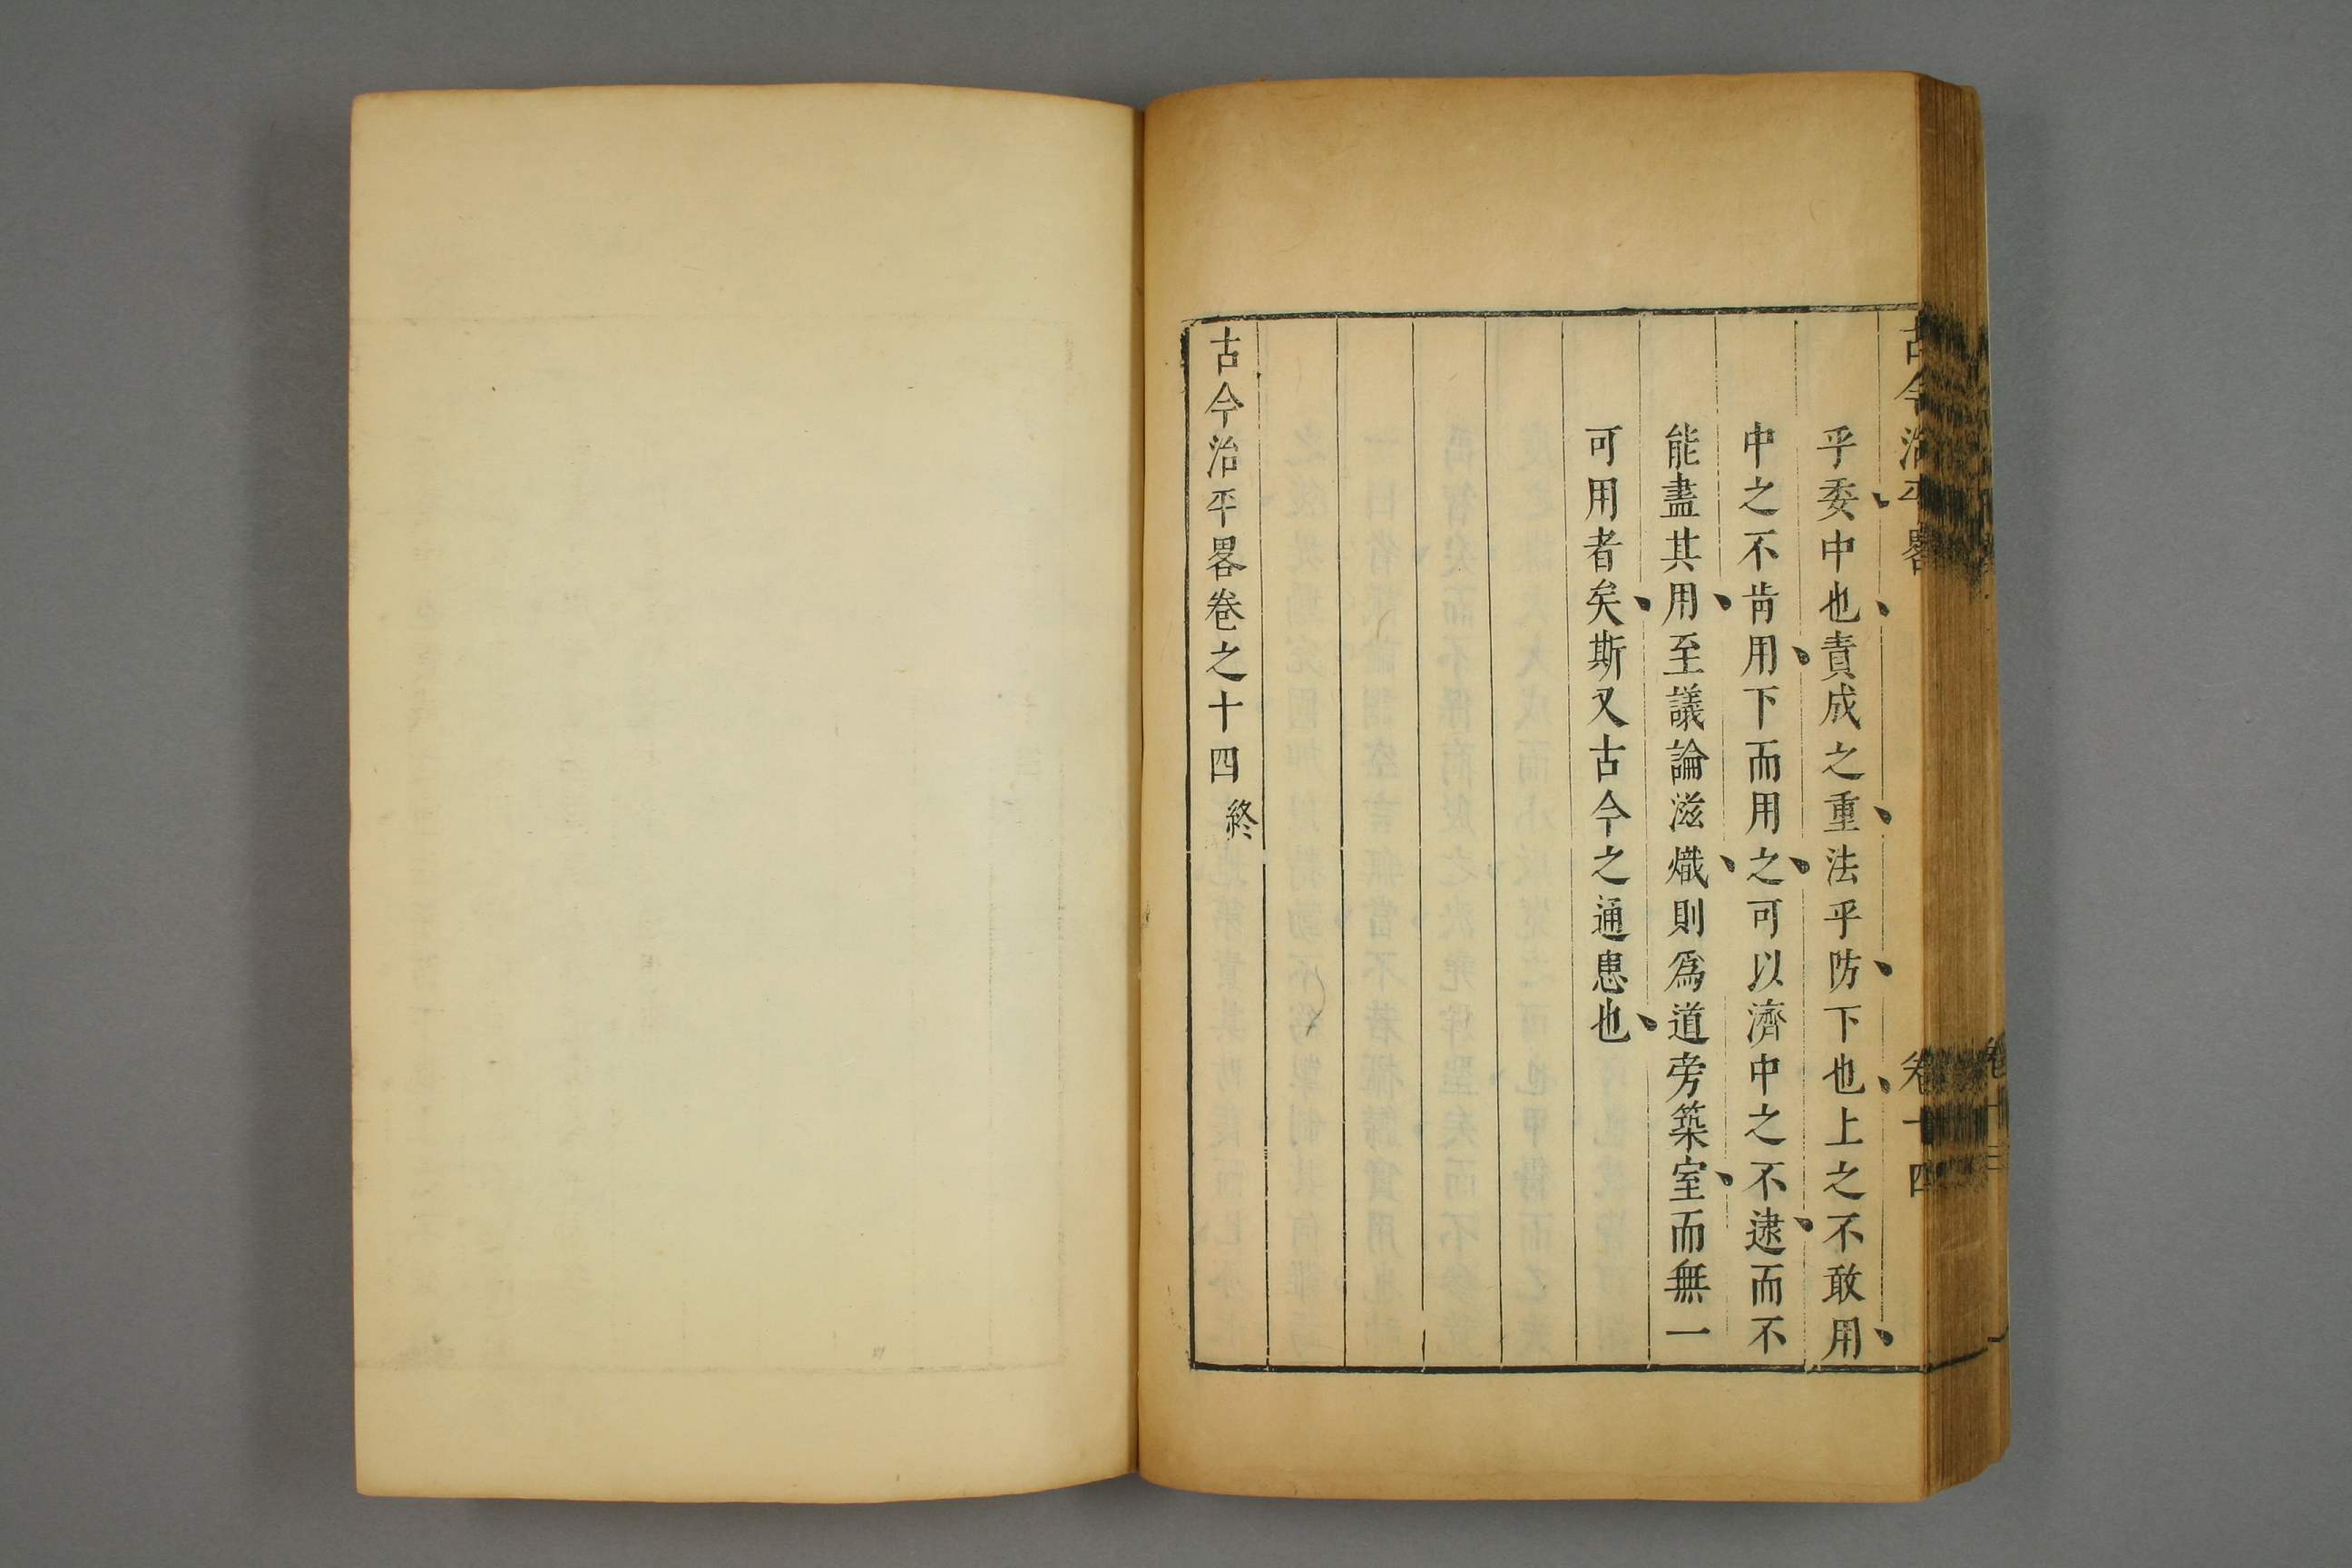 古今治平畧
卷十四
乎委中也責成之重法乎防下也上之不敢用
中之不肯用下而用之可以濟中之不逮而不
能盡其用至議論滋熾則為道旁築室而無一
可用者矣斯又古今之通患也
古今治平畧卷之十四終